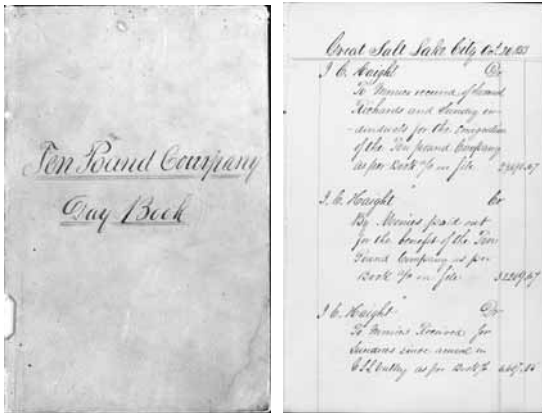 Ten Pound Company
Day Book
Great Salt Lake City Oct.
I C. Haight Dr
To Monies received of
Richards and Sundry in-
-dividuals for the emigration
of the Ten pound Company
as per Book in file
I. C. Haight Cr
By Monies paid out
for the benefit of the Ten
Pound Company as per
Book in file
I C. Haight Dr
To Monies Received for
Sundries since arrival in
Valley as per Book